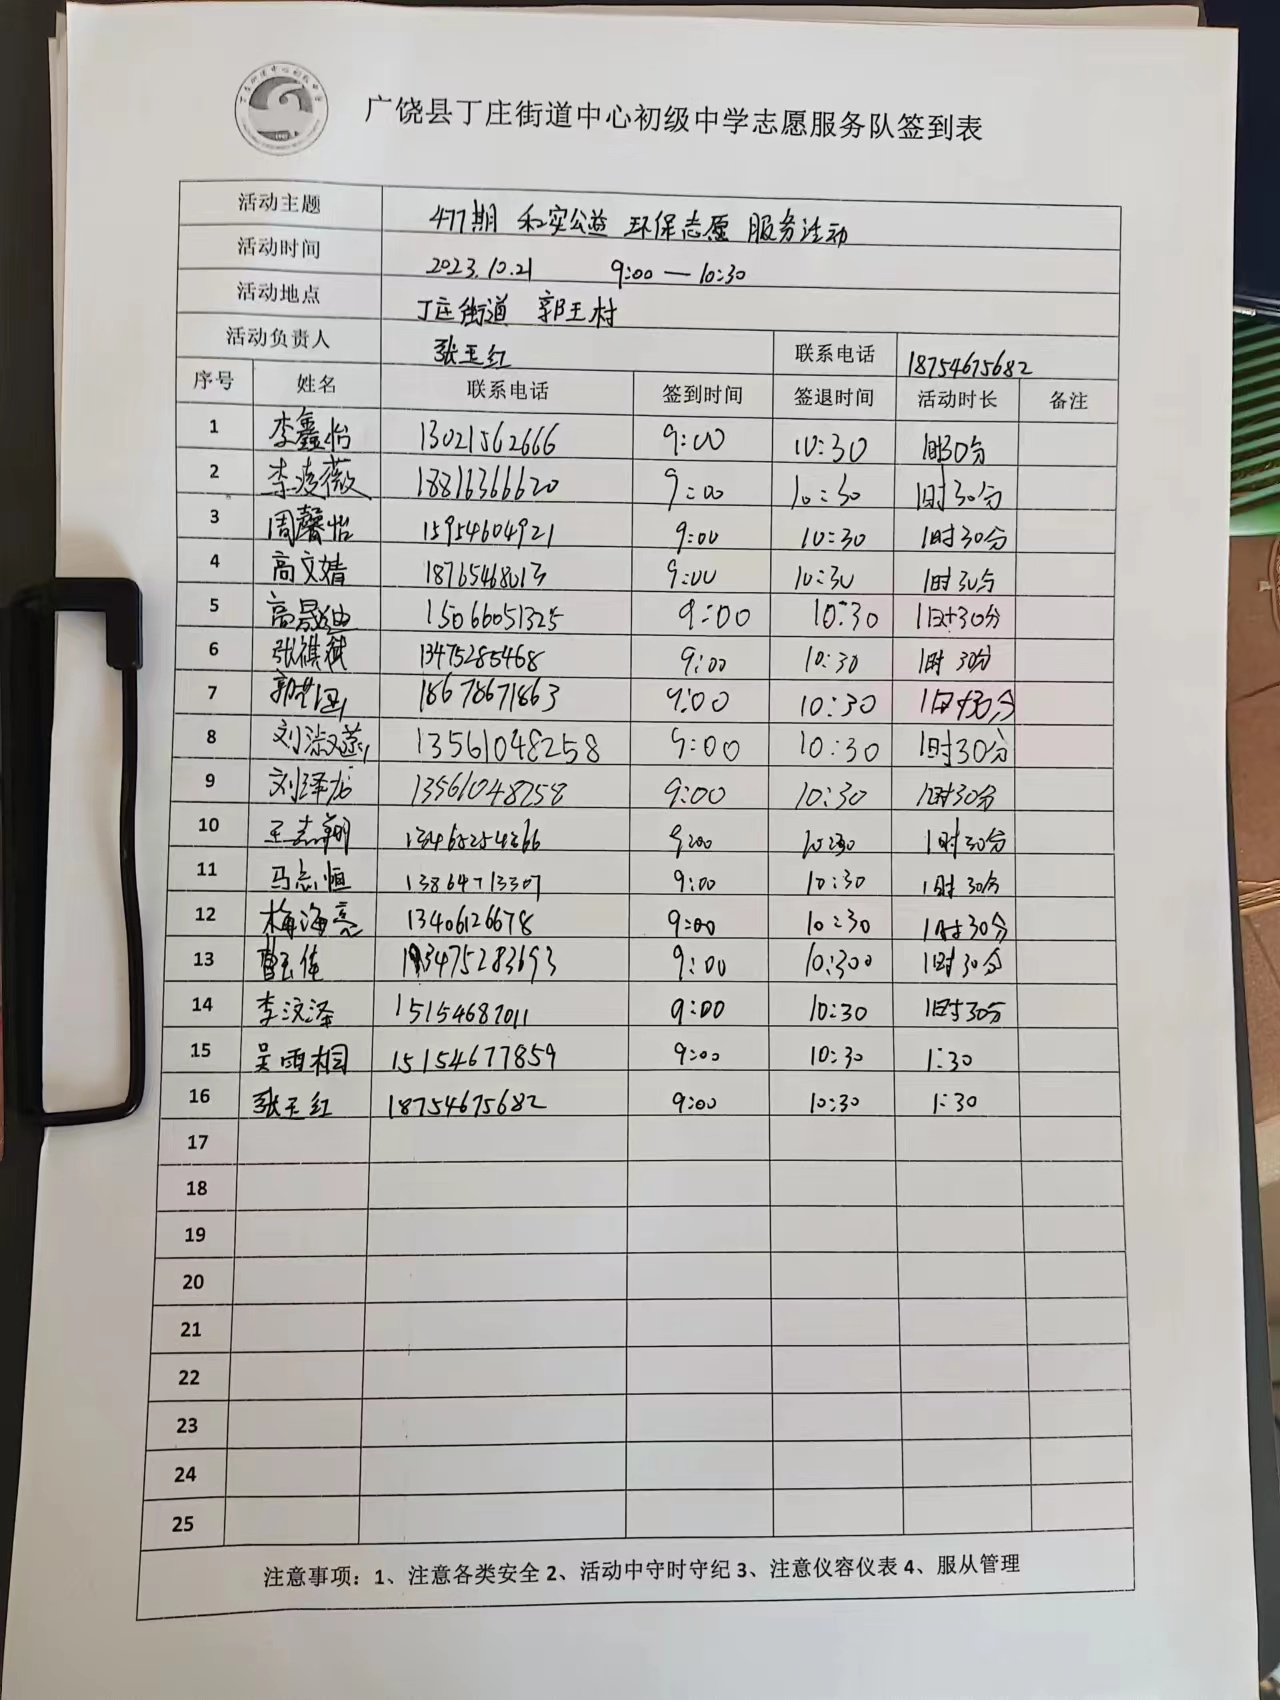 广饶县丁庄街道中心初级中学志愿服务队签到表
活动主题 477期 和实公益 环保志愿 服务活动
活动时间 2023.10.21 9:00—10:30
活动地点 丁庄街道 郭王村
活动负责人 张玉红 联系电话 18754675682
序号 姓名 联系电话 签到时间 签退时间 活动时长 备注
1 李鑫怡 13021562666 9:00 10:30 1时30分
2 李凌薇 18816366620 9:00 10:30 1时30分
3 周馨怡 15954604921 9:00 10:30 1时30分
4 高文婧 18765468013 9:00 10:30 1时30分
5 15066051325 9:00 10:30 1时30分
6 张祺斌 13475285468 9:00 10:30 1时30分
7 18678671863 9:00 10:30 1时30分
8 13561048258 9:00 10:30 1时30分
9 刘泽龙 13561048258 9:00 10:30 1时30分
10 王志翔 9:00 10:30 1时30分
11 马志恒 13864713307 9:00 10:30 1时30分
12 梅海亮 13406126678 9:00 10:30 1时30分
13 曹玉佳 13475283693 9:00 10:300 1时30分
14 李汶泽 15154687011 9:00 10:30 1时30分
15 吴雨桐 15154677859 9:00 10:30 1:30
16 张玉红 18754675682 9:00 10:30 1:30
17
18
19
20
21
22
23
24
25
注意事项：1、注意各类安全 2、活动中守时守纪 3、注意仪容仪表 4、服从管理